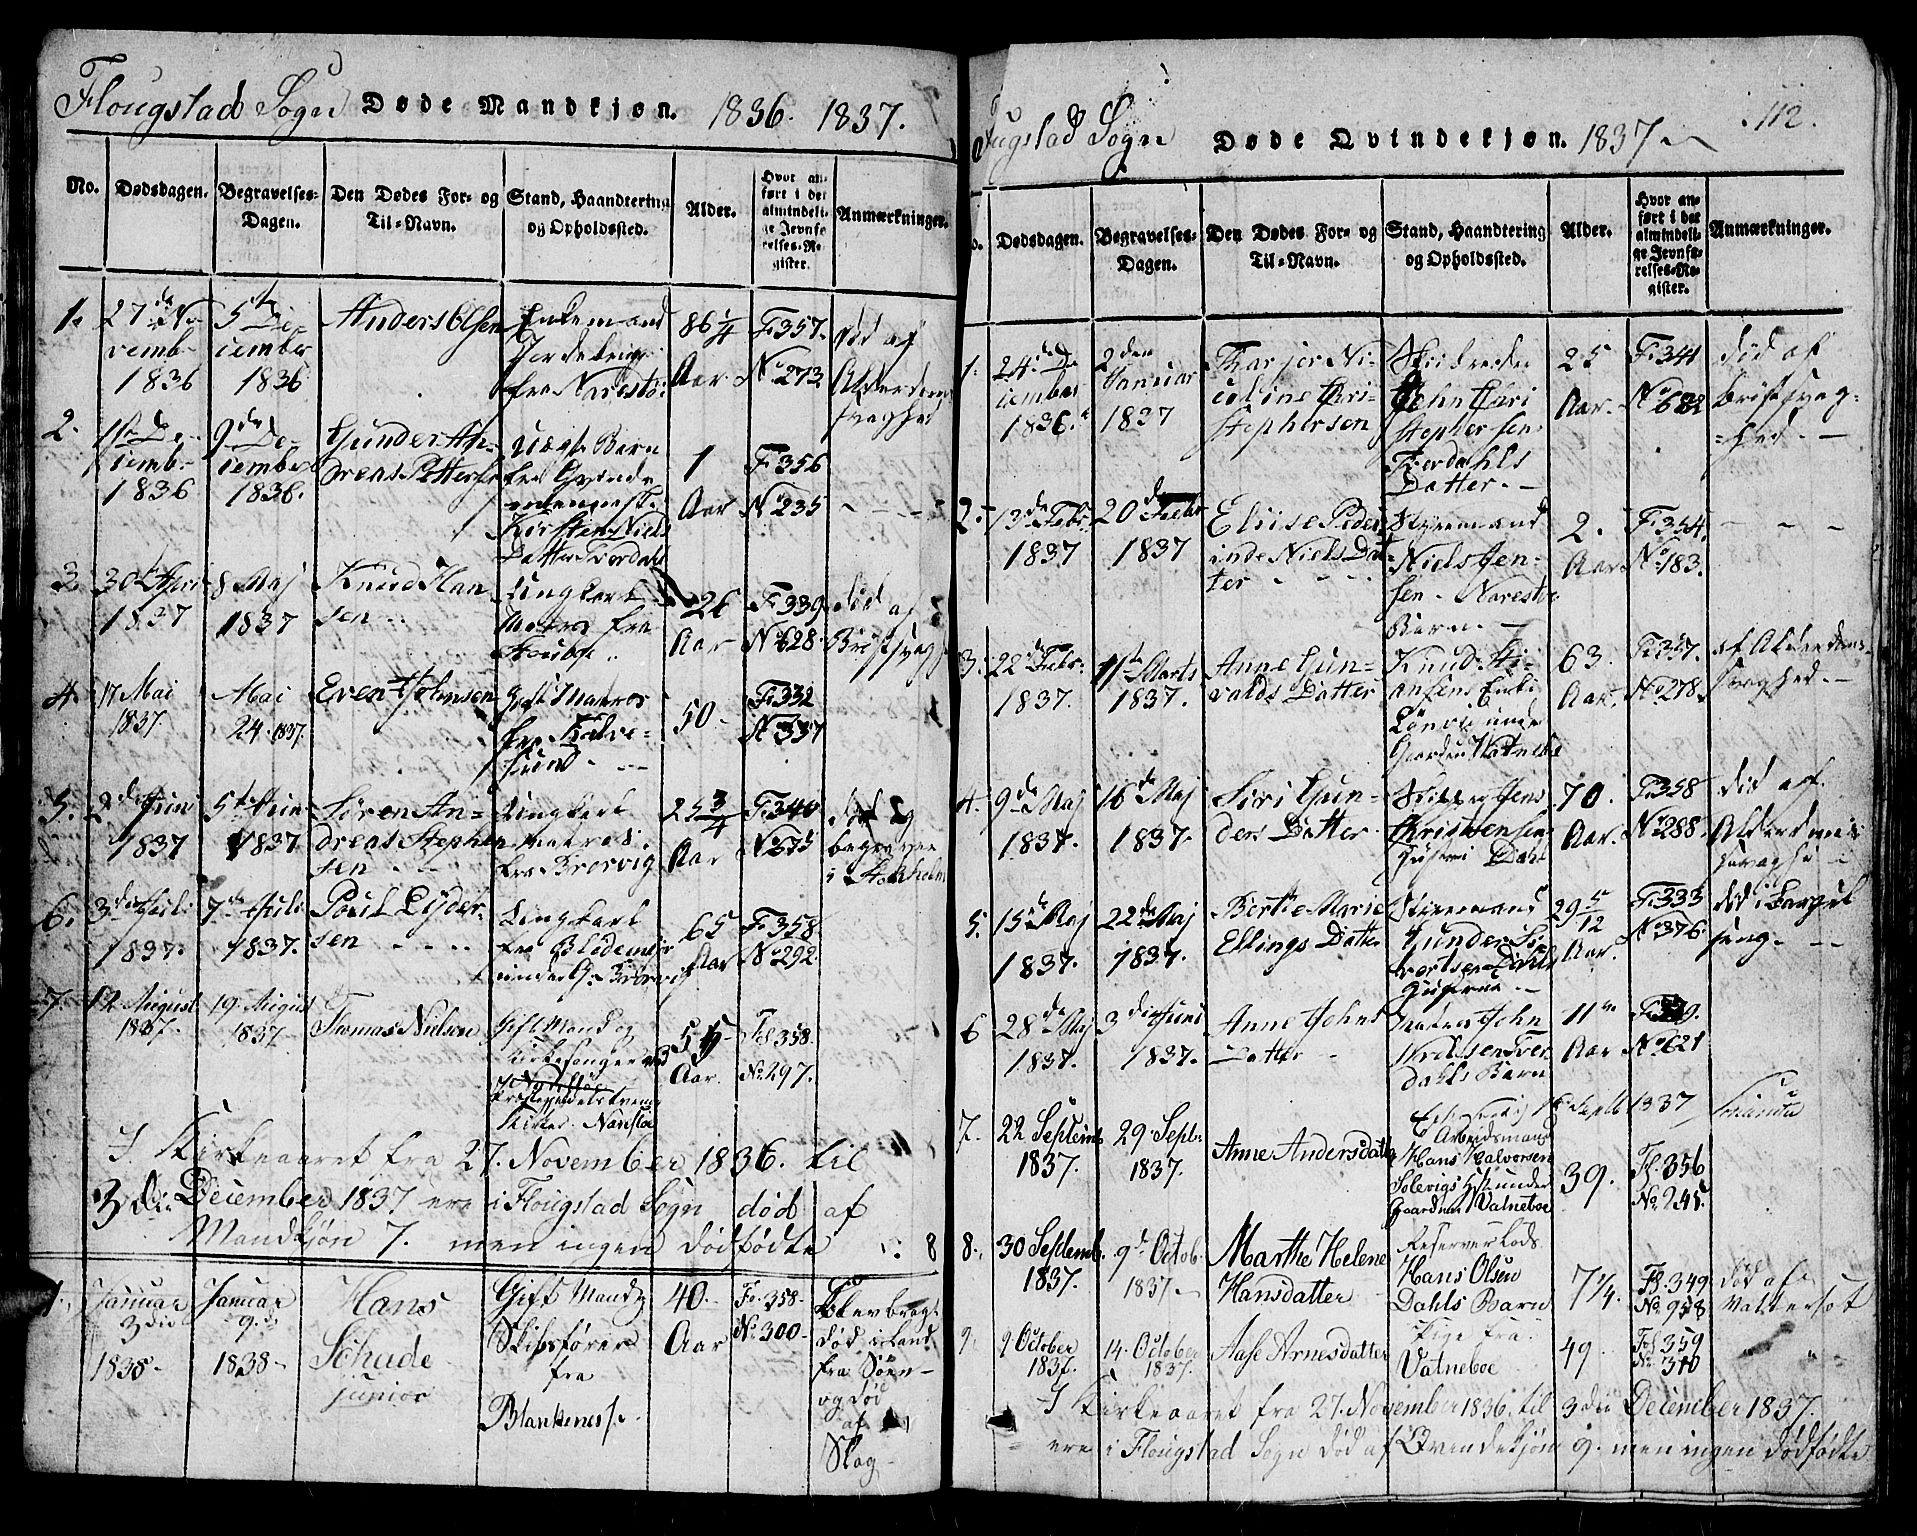 Flougstad Sogn Døde Mandkjøn. 1836. 1837.
No. Dødsdagen. Begravelses-Dagen. Den Dødes For- og Til-Navn. Stand, Haandtering og Opholdssted. Alder. Hvor anført i det almindelige Jevnførelses-Register. Anmærkninger.
1. 27de Novemb. 1836 5te December 1836 Anders Olsen Enkemand fra Narestø 86 1/4 Aar F. 357. No 273. død af Alderdoms svaghed
2. 1ste Decemb. 1836 9de December 1836. Gunder Andreas Petterse Uægte Barn Kirsten Niels Datter Tverdahl 1 Aar F. 356 No 235
3. 30te April 1837 8 Maj 1837 Knud Hansen Ungkarl Matros fra 26 Aar F. 339 No. 628. død af Brystsvagh
4. 17 Mai 1837 Mai 24. 1837. Even Johnsen Gift Matros fra Kalvesund 50 F. 332 No. 337
5. 2de Juni 1837 5te Juni 1837 Søren Andreas Stephensen Ungkarl matros fra Brorvig 25 3/4 Aar F. 340 No 275 død og begraven i Stokholm
6. 3de Juli 1837. 7de Juli 1837. Poul Lydersen Ungkarl fra under G. Brorvig 65 Aar F. 358. No. 292.
7. 12 August 1837. 19 August 1837. Thomas Nielsen Gift Mand og Kirkesanger ved Kirker. Narestø 55 Aar. Fol 358. No. 297.
I Kirkeaaret fra 27. November 1836. til
3die December 1837 ere i Flougstad Sogn død af
Mandkjøn 7. men ingen Dødfødte 8
1. Januar 3die 1838 Januar 9de 1838 Hans Schade junior Gift Mand og Skibsfører fra Blankenese. 40 Aar Fo. 358 No. 300 død i Land fra Søen og død af Slag
Fugstad Sogn Døde Qvindekjøn. 1837 112.
No. Dødsdagen. Begravelses-Dagen. Den Dødes For- og Til-Navn. Stand, Haandtering og Opholdssted. Alder. Hvor anført i det almindelige Jevnførelses-Register. Anmærkninger.
1. 24de December 1836. 2den Januar 1837 Tharjer Nicoline Christephersen John Christephersen Tverdahls Datter. 25 Aar. F. 341 No 682 død af Brystsvaghed.
2. 13de Febr. 1837 20de Febr 1837 Eliise Pederinde Niels Datter Styrmand Niels Jensen Narestø Barn. 2. Aar F. 354. No. 183.
3. 22de Febr. 1837. 11te Marts 1837. Anne Gunvalds Datter Knud Enke under Gaarden Vatnebø 63. Aar. F. 357. No. 278. af Alderdoms svaghed.
4. 9de Maj 1837. 16de Maj 1837. Siri Gunders Datter Skipper Jens Christensen Dahl 70. Aar. F. 358 No. 288. død af Alderdoms svaghed
5. 15de Maj 1837. 22de Maj 1837. Berthe Marie Ellings Datter Styrmand Gunder Sivertsen Dahls Hustrue 29 5/12 Aar. F. 333 No. 376 død i Barselseng
6 28de Maj 1837. 3die Juni 1837. Anne Johns Datter Matros John Tverdahls Barn 11 Aar No. 621
16 Septb 1837
7. 22 Septemb 1837. 29 Septb. 1837. Anne Andersdatter Arbeidsmand Hans Halvorsen Solevigs Hst. under Gaarden Vatneboe 39. Fol. 356 No. 245.
8. 30 Septemb. 1837. 9de Octob. 1837. Marthe Helene Hansdatter Reserver Lods Hans Olsen Dahls Barn 7 1/4. Fol. 349 No. 958 Død af Vattersot
9. 9 October 1837. 14. October 1837. Aase Arnesdatter Pige fra Vatneboe 49 Fol 359 No. 310
I Kirkeaaret fra 27. November 1836. til 3die December 1837.
ere i Flougstad Sogn død af Qvindekjøn 9. men ingen dødfødte